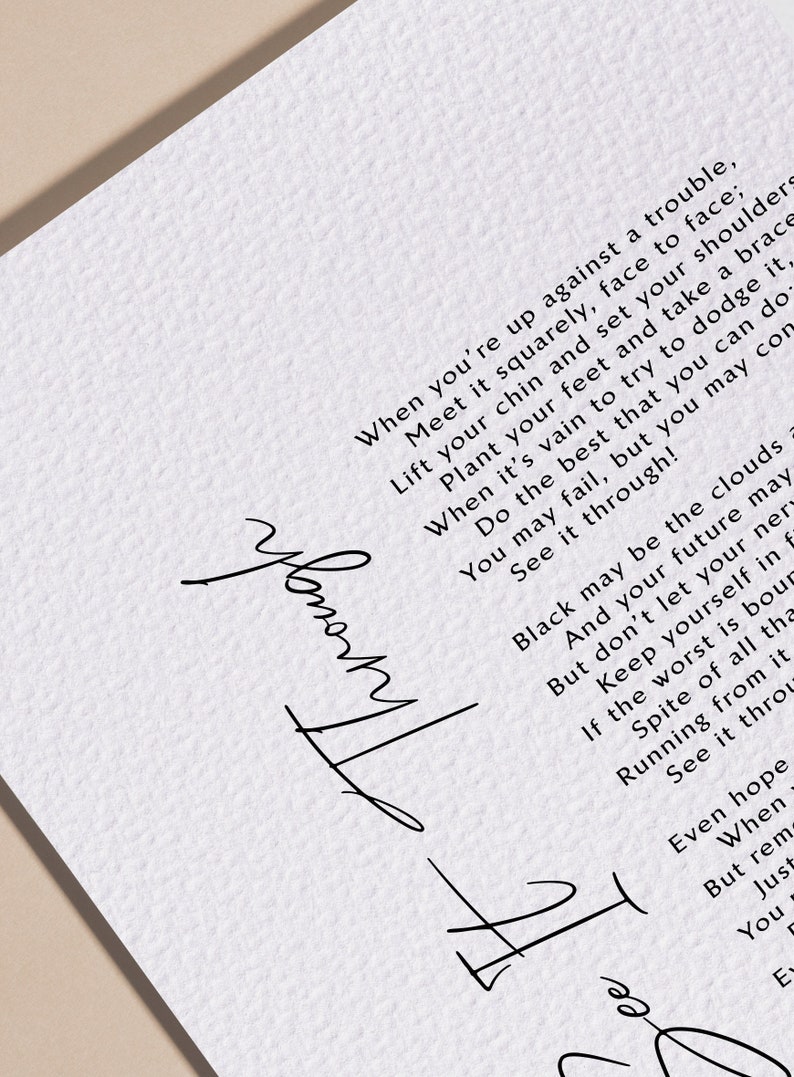 See It Through
When you're up against a trouble,
Meet it squarely, face to face;
Lift your chin and set your shoulders
Plant your feet and take a brace
When it's vain to try to dodge it,
Do the best that you can do;
You may fail, but you may
See it through!
Black may be the clouds
And your future may
But don't let your
Keep yourself in
If the worst is
Spite of all
Running from it
See it
Even hope
When
But
Just
You